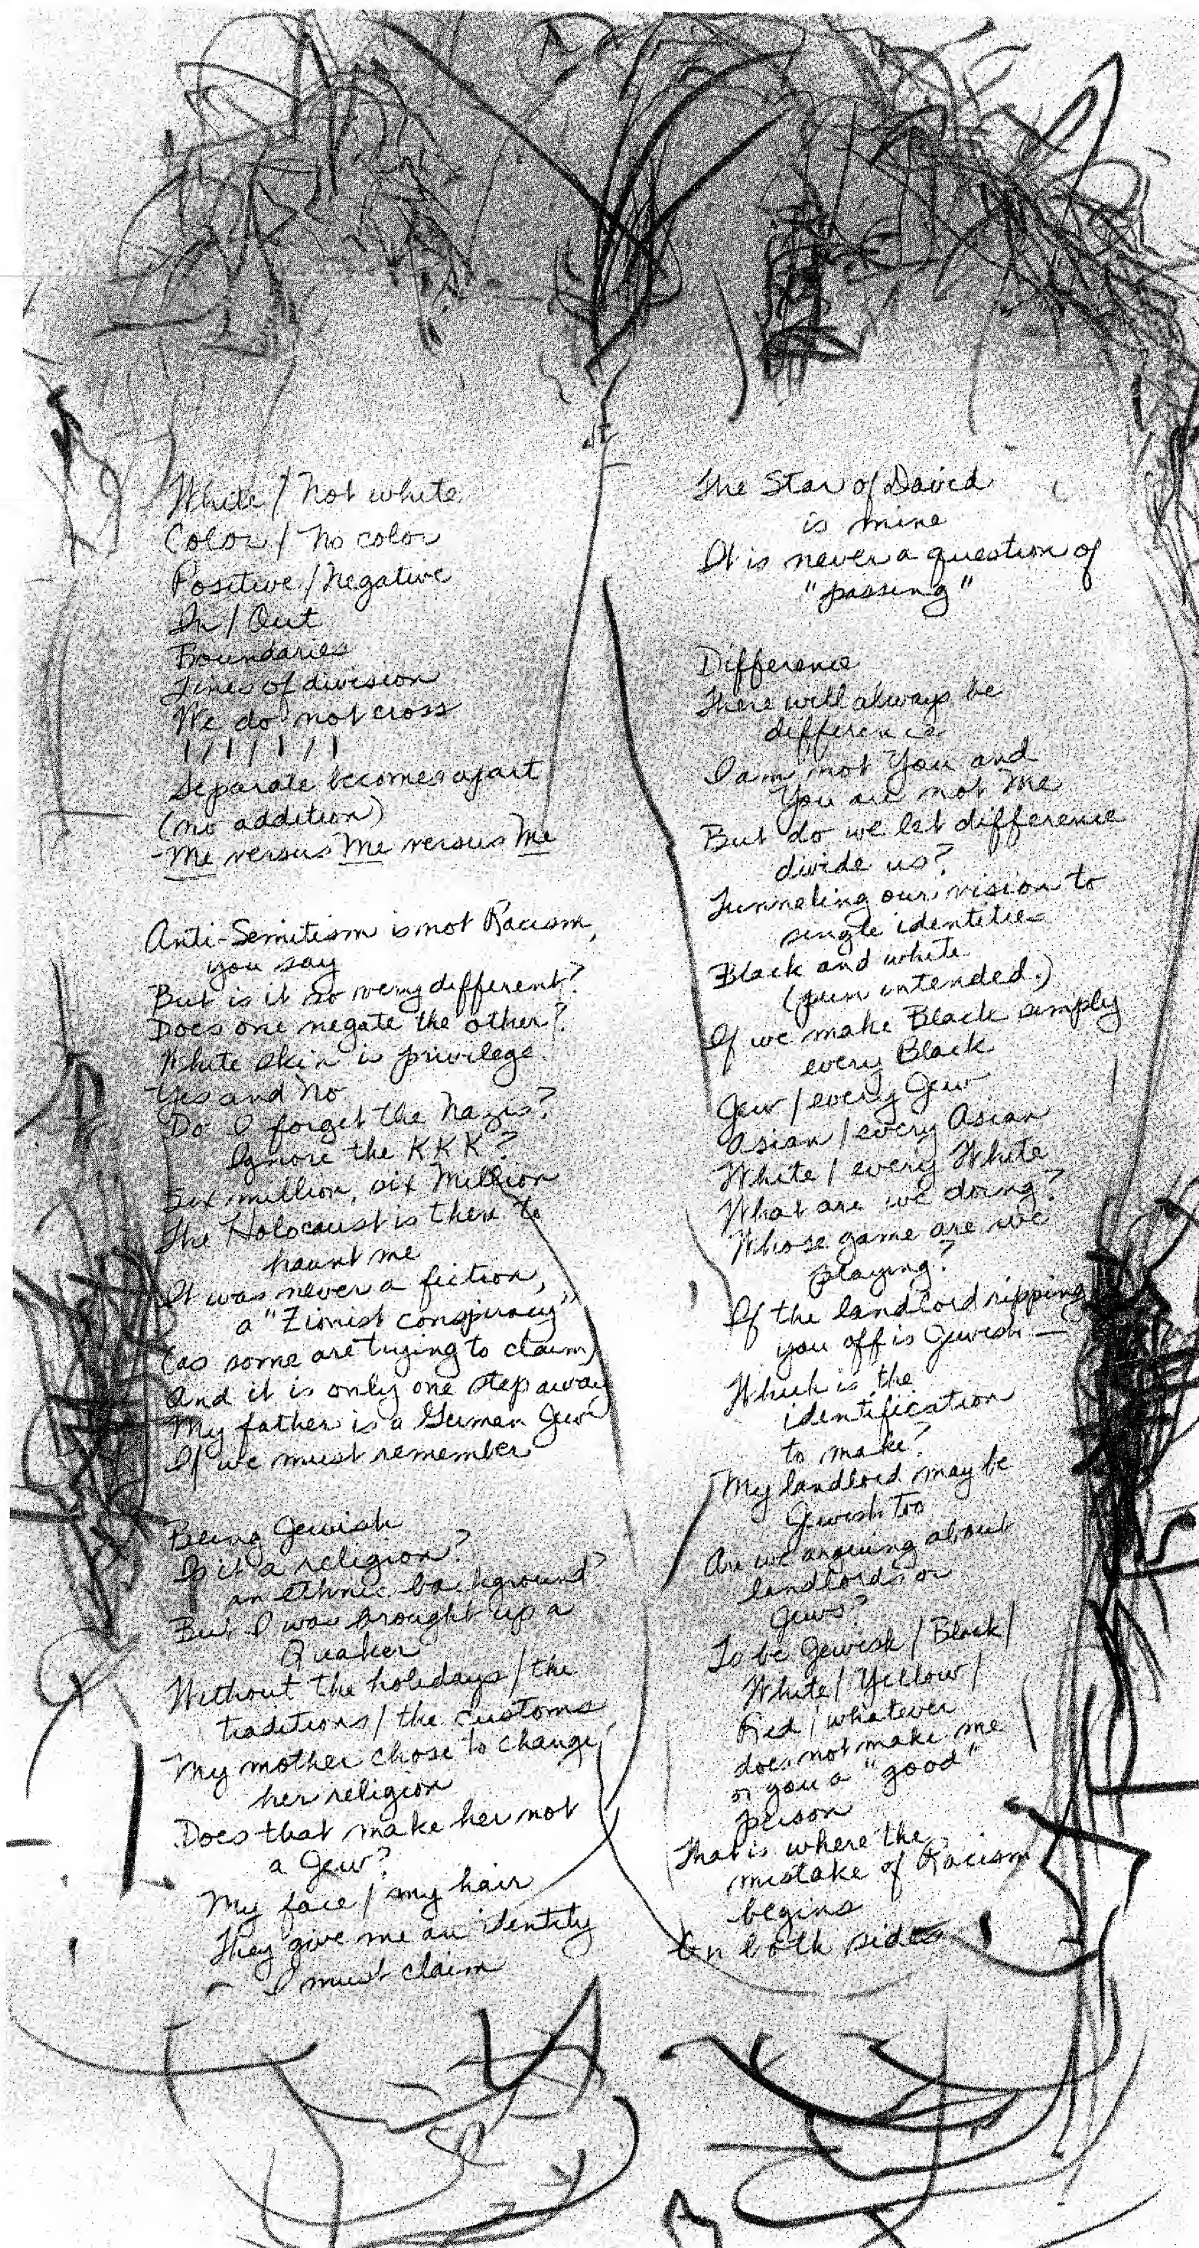 White / Not white
Color / No color
Positive / Negative
In / Out
Boundaries
Lines of division
We do not cross
1 / 1 / 1 / 1
Separate becomes apart
(no addition)
-Me versus Me versus Me
Anti-Semitism is not Racism,
you say
But is it so very different?
Does one negate the other?
White skin is privilege.
Yes and No
Do I forget the Nazis?
Ignore the KKK?
Six million, six Million
The Holocaust is there to
haunt me
It was never a fiction,
a "Zionist conspiracy"
(as some are trying to claim)
And it is only one step away
My father is a German Jew
If we must remember
Being Jewish
Is it a religion?
an ethnic background?
But I was brought up a
Quaker
Without the holidays / the
traditions / the customs
My mother chose to change
her religion
Does that make her not
a Jew?
My face / my hair
They give me an identity
I must claim
The Star of David
is mine
It is never a question of
"passing"
Difference
There will always be
difference
I am not You and
You are not Me
But do we let difference
divide us?
Tunneling our vision to
single identities
Black and white
(pun intended.)
If we make Black simply
every Black
Jew / every Jew
Asian / every Asian
White / every White
What are we doing?
Whose game are we
playing?
If the landlord ripping
you off is Jewish —
Which is the
identification
to make?
My landlord may be
Jewish too
Are we arguing about
landlords or
Jews?
To be Jewish / Black /
White / Yellow /
Red / whatever
does not make me
or you a "good"
person
That is where the
mistake of Racism
begins
On both sides